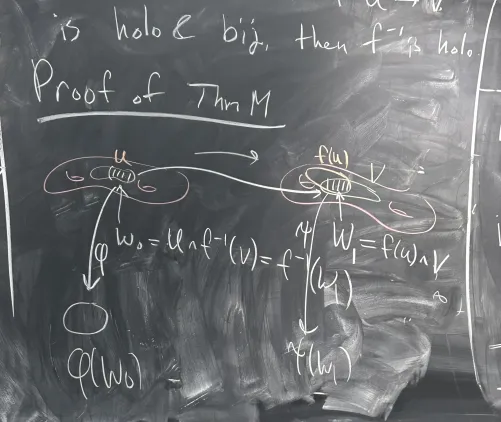 u → v
is holo & bij, then f⁻¹ is holo
Proof of Thm M
u f(u) V
φ W₀ = U ∩ f⁻¹(V) = f⁻¹(W₁) ψ W₁ = f(u) ∩ V
φ(W₀) ψ(W₁)